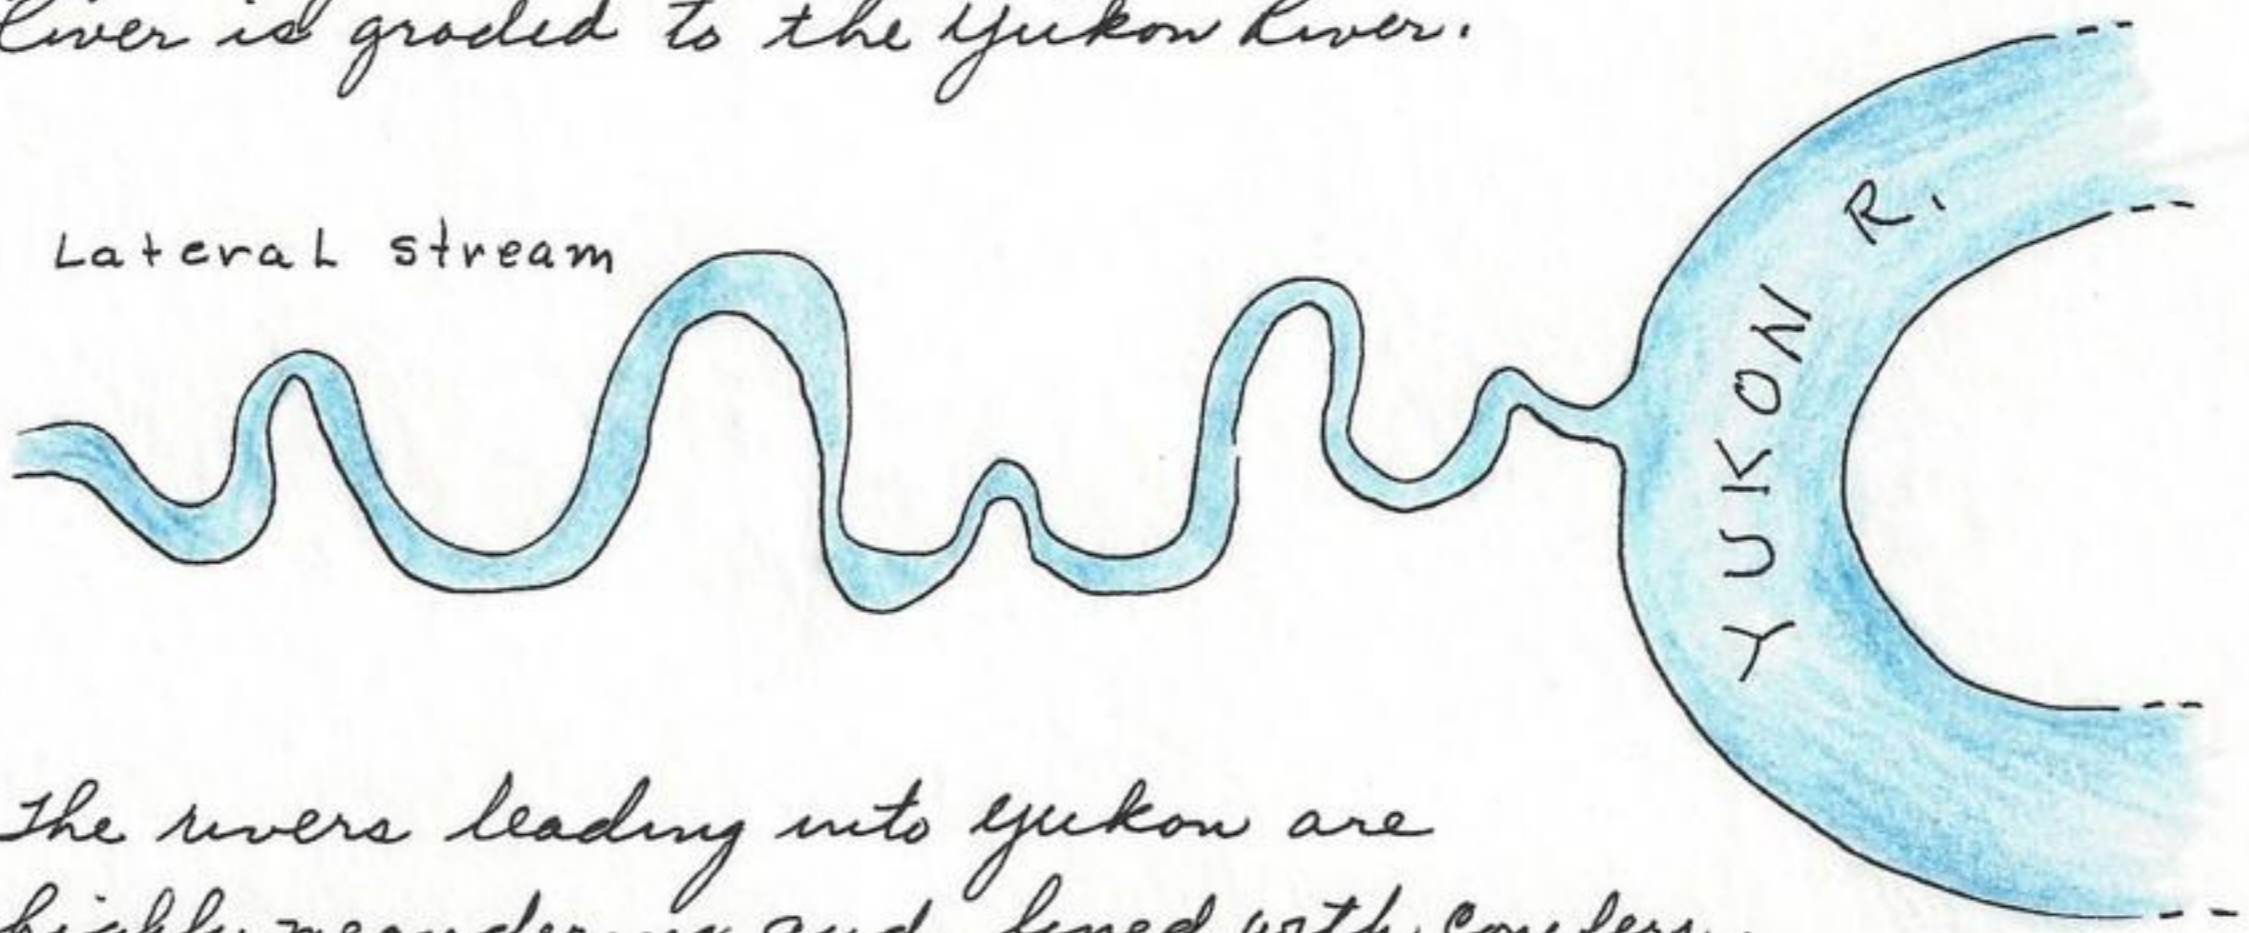 River is graded to the Yukon River.
Lateral stream
YUKON R.
The rivers leading into Yukon are
highly meandering and lined with conifers.